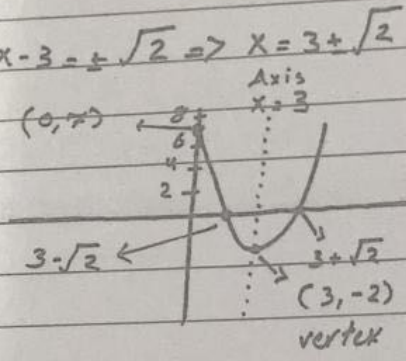 x-3 = ± √2 => x = 3 ± √2
Axis
x = 3
(0, 7)
8
6
4
2
3-√2
3+√2
(3, -2)
vertex